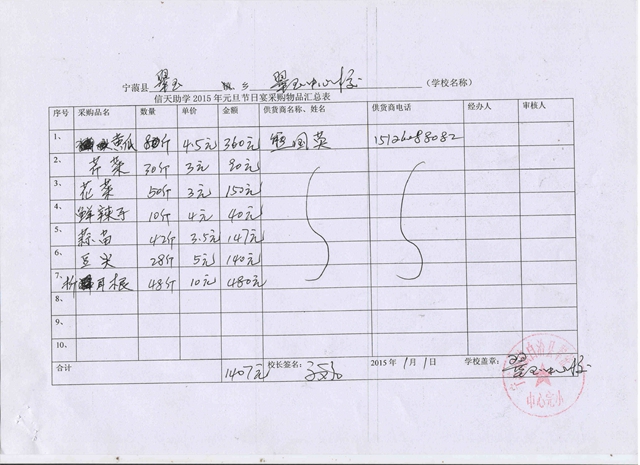 宁蒗县 翠玉 乡 翠玉中心校 (学校名称)
信天助学 2015 年元旦节日宴采购物品汇总表
序号 采购品名 数量 单价 金额 供货商名称、姓名 供货商电话 经办人 审核人
1、 黄瓜 80斤 4.5元 360元 国英
2、 芹菜 30斤 3元 90元
3、 花菜 50斤 3元 150元
4、 鲜辣子 10斤 4元 40元
5、 蒜苗 42斤 3.5元 147元
6、 豆尖 28斤 5元 140元
7、 折耳根 48斤 10元 480元
8、
9、
10、
合计 1407元 校长签名: 2015 年 1月1日 学校盖章: 翠玉中心校
中心完小